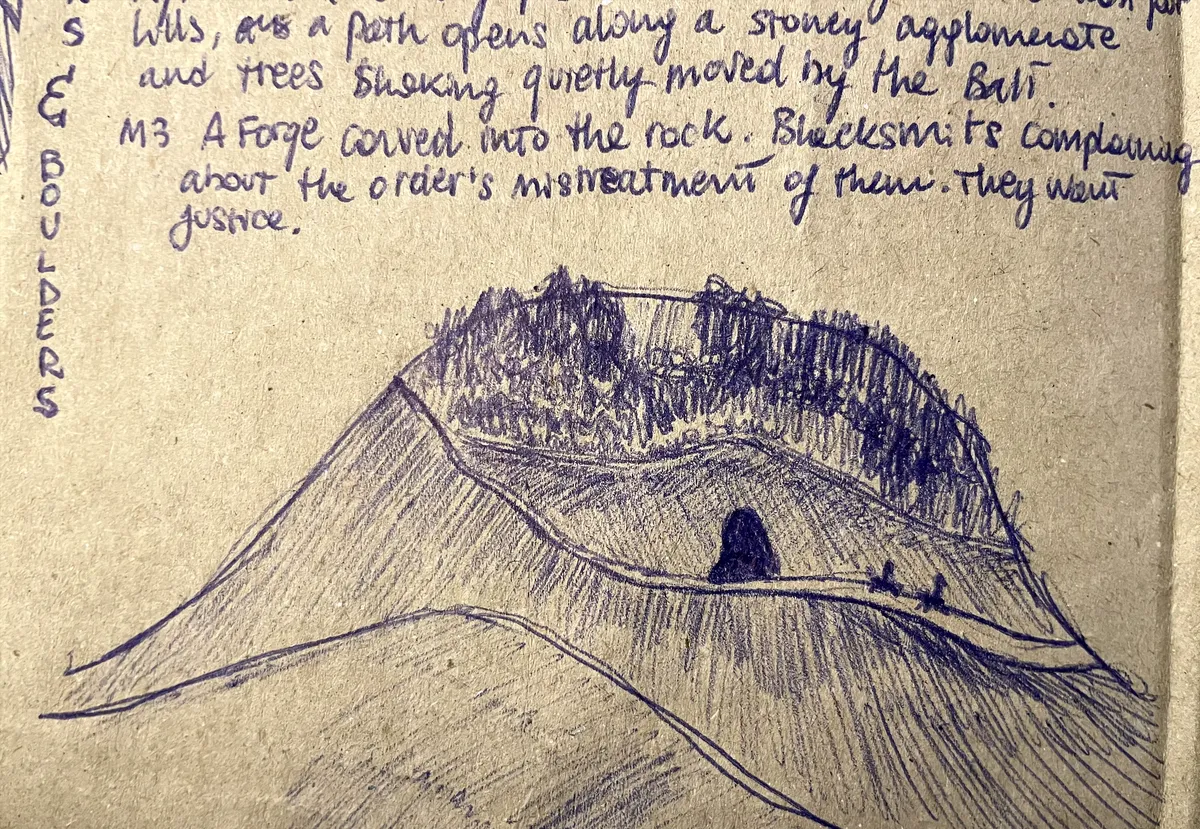 hills, a path opens along a stoney agglomerate
and trees shaking quietly moved by the
M3 A Forge carved into the rock. Blacksmits complaining
about the order's mistreatment of them. They want
justice.
S
&
BOULDERS